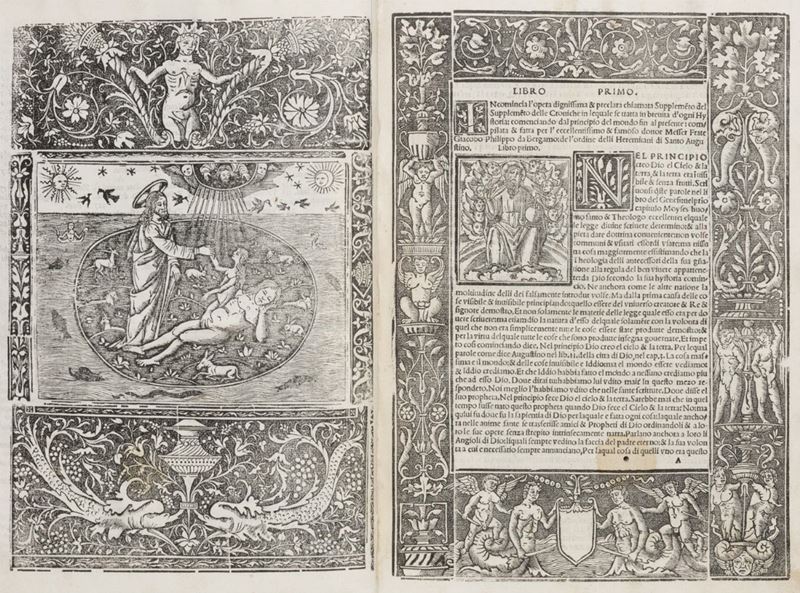 LIBRO PRIMO.
INcomincia l'opera dignissima & preclara chiamata Supplemẽto del
Supplemẽto delle Croniche in lequale se tratta in brevita d'ogni Hy
storia: comenciando dal principio del mondo fin al presente: com
pilata & fatta per l'eccellentissimo & famoso dottor Messer Frate
Giacobo Philippo da Bergamo: de l'ordine delli Heremitani di Santo Augu
stino. Libro primo.
NEL PRINCIPIO
creo Dio el Cielo & la
terra, & la terra era inuisi
bile & senza frutti. Scri
bro del Genesi nel prio
capitulo Moyses huo
mo santo & Theologo eccellente: elquale
le legge diuine
communi & usitati essordi
na cosa maggiormente essistimando che la
Theologia delli antecessori della sua
alla regula del ben viuere appartene
Dio secondo la sua hystoria comin
cio. Ne anchora come le altre natione la
moltitudine delli dei falsamente introdur volse. Ma dalla prima causa delle co
se visibile & inuisibile principiando: quello essere del vniuerso creatore & Re &
signore demostro. Et non solamente le materie delle legge quale esso era per do
quel che non era simplicemente tutte le cose essere state produtte demostro: &
per la virtu del quale tutte le cose che sono produtte insegna gouernate. Et impe
to cosi comenciando dice. Nel principio Dio creo el cielo & la terra. Per lequal
parole come dice Augustino nel lib. della citta di Dio, nel cap. La cosa mas
sima e il mondo: & delle cose inuisibile e Iddio: ma el mondo essere vediamo:
& Iddio crediamo. Et che Iddio habbia fatto el mondo a nessuno crediamo piu
che ad esso Dio. Doue dirai tu habbiamo lui vdito mai? in questo mezo re
spondeto. Noi meglio l'habbiamo vdito che nelle sante scritture. Doue disse el
suo propheta. Nel principio fece Dio el cielo & la terra. Sarebbe mai che in quel
tempo fusse nato questo propheta quando Dio fece el Cielo & la terra? No: ma
qui ui fu doue fu la sapientia di Dio per laquale e fatta ogni cosa: laquale ancho
ra nelle anime sante se trasferisse amici & Propheti di Dio ordinandoli & a lo
ro le sue opere senza strepito intrinsecamente narra. Parlano anchora a loro li
Angioli di Dio: liquali sempre vedino la faccia del padre eterno: & la sua volon
ta a cui e necessario sempre annunciano. Per laqual cosa di quelli vno era questo
A